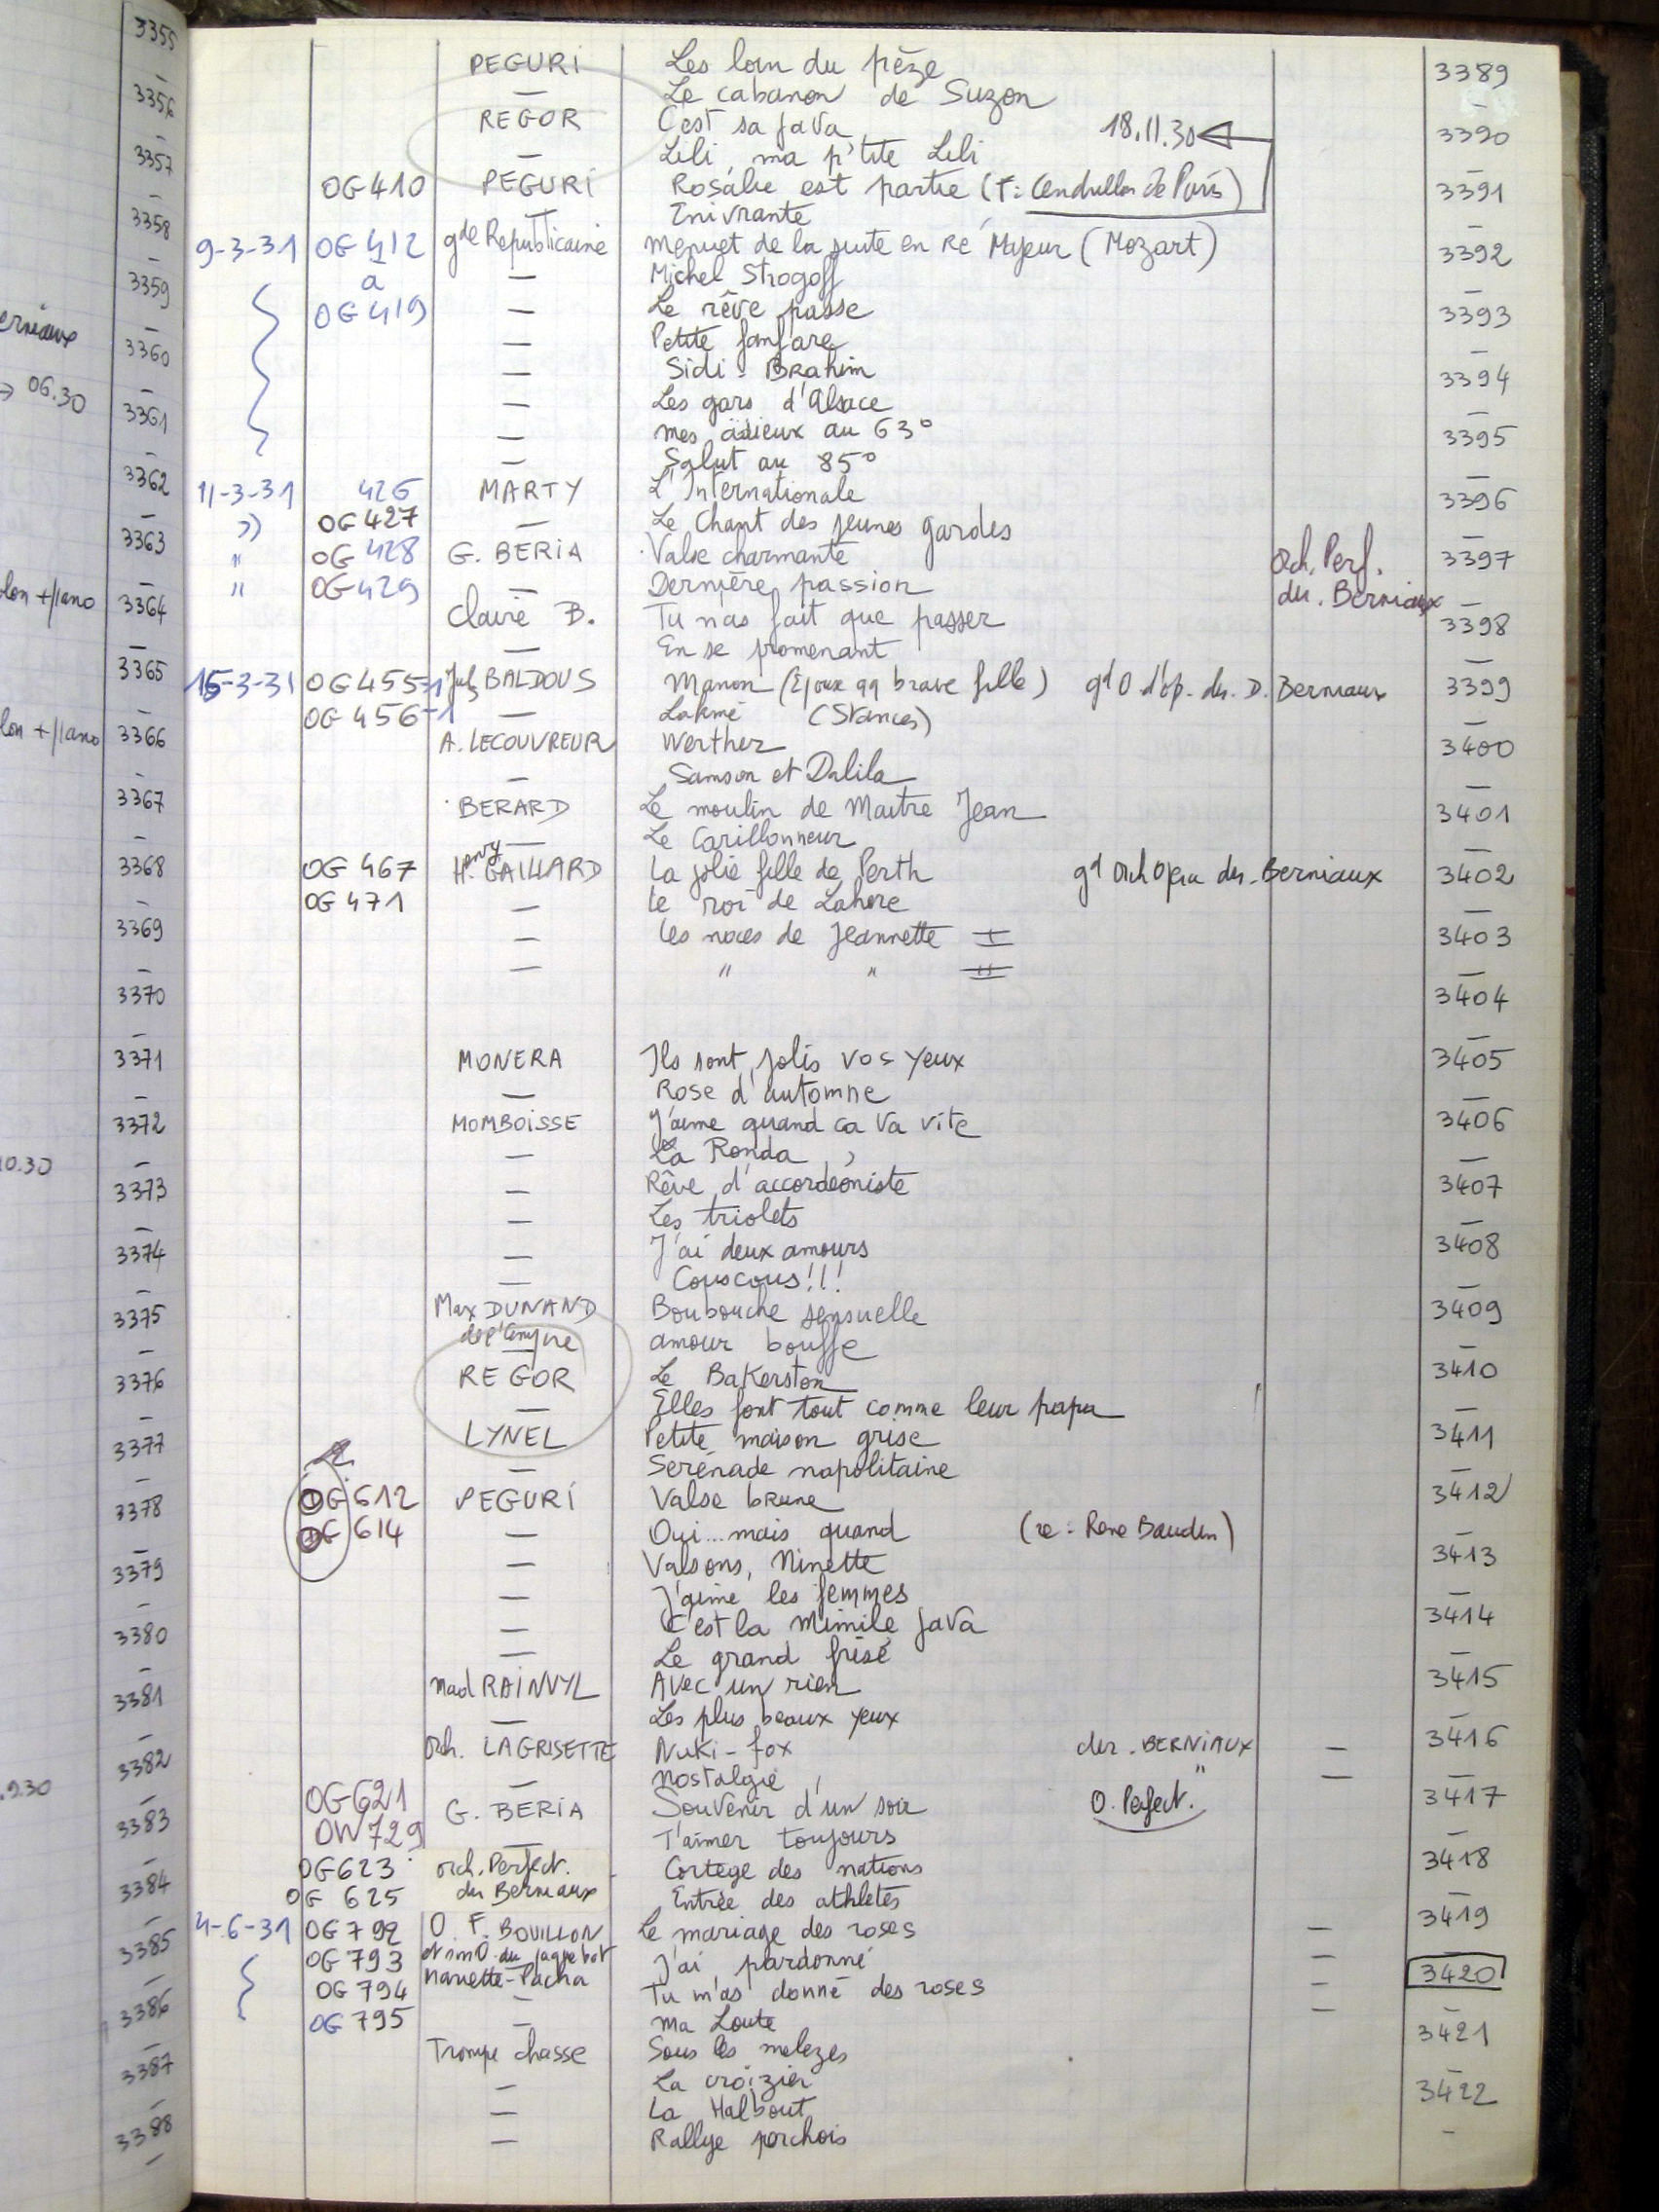 3355
PEGURI Les loin du pèze 3389
— Le cabanon de Suzon —
3356
REGOR C'est sa java 18.11.30 3390
— Lili, ma p'tite Lili
3357
OG 410 PEGURI Rosalie est partie (F: Cendrillon de Paris) 3391
Enivrante
3358
9-3-31 OG 412 gde Republicaine menuet de la suite en Ré Majeur (Mozart) 3392
à — Michel Strogoff —
3359
OG 419 — Le rêve passe 3393
— Petite fanfare —
3360
— Sidi-Brahim 3394
→ 06.30
— Les gars d'alsace —
3361
— mes adieux au 63° 3395
— Salut au 85° —
3362
11-3-31 426 MARTY L'Internationale 3396
" OG 427 — Le Chant des jeunes gardes —
3363
" OG 428 G. BERIA Valse charmante Orch. Perf. 3397
" OG 429 — Dernière passion dir. Berniaux —
+piano 3364
Claire B. Tu n'as fait que passer 3398
— En se promenant —
3365
15-3-31 OG 455-1 Juls BALDOUS Manon (Epoux qq brave fille) gd O. d'op. dir. D. Berniaux 3399
OG 456-1 — Lakmé (Stances) —
+piano 3366
A. LECOUVREUR Werther 3400
— Samson et Dalila —
3367
BERARD Le moulin de Maitre Jean 3401
— Le Carillonneur —
3368
OG 467 Henry GAILLARD La jolie fille de Perth gd Orch Opera dir. Berniaux 3402
OG 471 — Le roi de Lahore —
3369
— Les noces de Jeannette I 3403
— " " II —
3370
3404
3371
MONERA Ils sont jolis vos yeux 3405
— Rose d'automne —
3372
MOMBOISSE J'aime quand ca va vite 3406
10.30
— La Ronda —
3373
— Rêve d'accordeoniste 3407
— Les triolets —
3374
— J'ai deux amours 3408
— Couscous!!! —
3375
Max DUNAND Boubouche sensuelle 3409
amour bouffe —
3376
REGOR Le Bakerston 3410
— Elles font tout comme leur papa —
3377
LYNEL Petite maison grise 3411
— Serenade napolitaine —
3378
OG 612 PEGURI Valse brune 3412
OG 614 — Oui... mais quand (re: Rene Baudin) —
3379
— Valsons, Ninette 3413
— J'aime les femmes —
3380
— C'est la mimile java 3414
— Le grand frisé —
3381
Mad RAINVYL Avec un rien 3415
— Les plus beaux yeux —
3382
orch. LAGRISETTE Nuki-fox dir. BERNIAUX — 3416
— Nostalgie " — —
.9.30
3383
OG 621 G. BERIA Souvenir d'un soir O. Perfect. 3417
OW 729 T'aimer toujours —
3384
OG 623 orch. Perfect. Cortege des nations 3418
OG 625 dir Berniaux Entrée des athletes —
3385
4-6-31 OG 792 O. F. BOUILLON Le mariage des roses — 3419
OG 793 et son O. du paquebot J'ai pardonné — —
3386
OG 794 mariette-Pacha Tu m'as donné des roses — 3420
OG 795 — ma Loute — —
3387
Trompe chasse Sous les melezes 3421
— La croizier —
3388
— La Halbout 3422
— Rallye porchois —